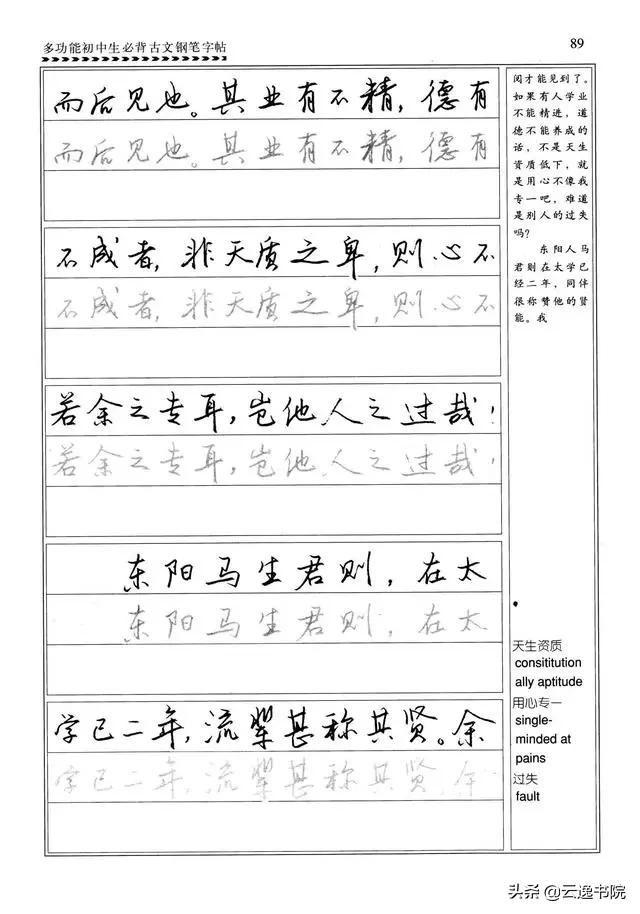 多功能初中生必背古文钢笔字帖
89
而后见也。其业有不精，德有
而后见也。其业有不精，德有
不成者，非天质之卑，则心不
不成者，非天质之卑，则心不
若余之专耳，岂他人之过哉！
若余之专耳，岂他人之过哉！
东阳马生君则，在太
东阳马生君则，在太
学已二年，流辈甚称其贤。余
学已二年，流辈甚称其贤。余
阅才能见到了。
如果有人学业
不能精进，道
德不能养成的
话，不是天生
资质低下，就
是用心不像我
专一吧，难道
是别人的过失
吗？
东阳人马
君则在太学已
经二年，同伴
很称赞他的贤
能。我
天生资质
consititution
ally aptitude
用心专一
single-
minded at
pains
过失
fault
头条@云逸书院